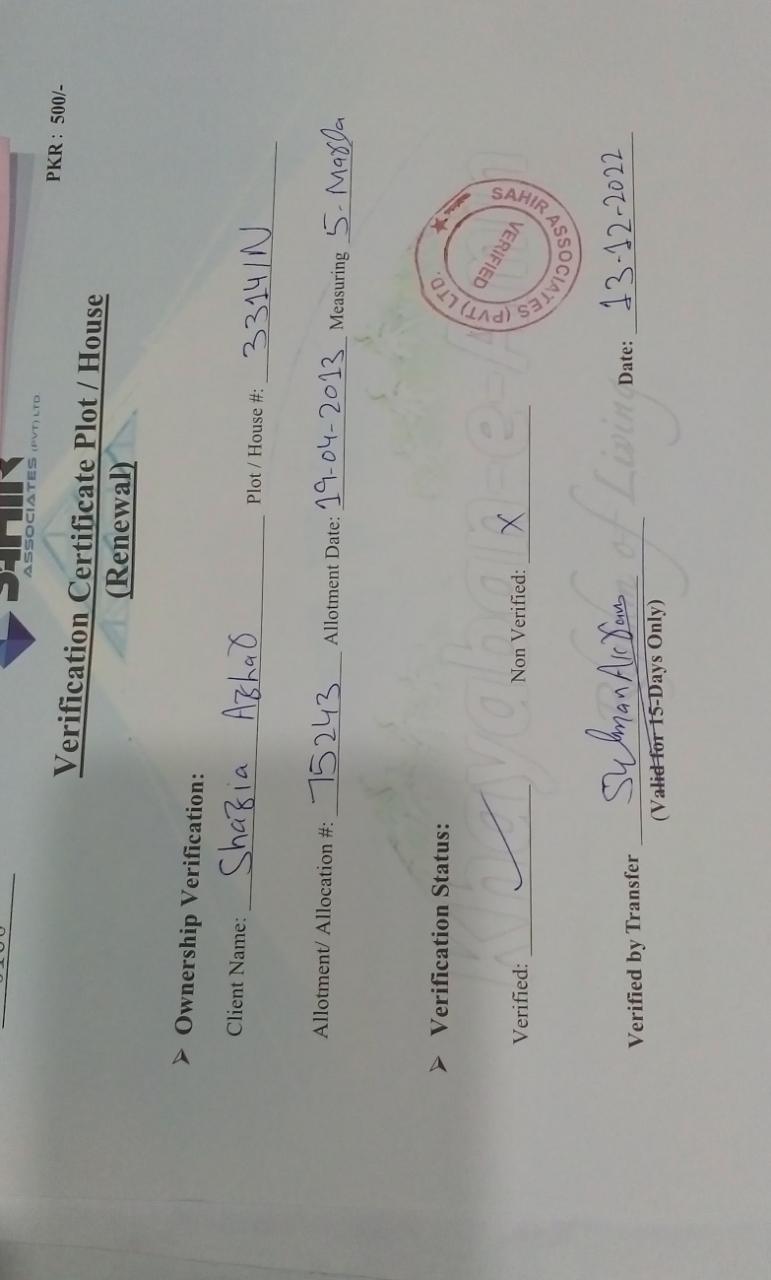 SAHIR
ASSOCIATES (PVT) LTD.
PKR : 500/-
Verification Certificate Plot / House
(Renewal)
➤ Ownership Verification:
Client Name: Shazia Azhar Plot / House #: 3314/N
Allotment/ Allocation #: 75243 Allotment Date: 19-04-2013 Measuring 5-Marla
➤ Verification Status:
Verified: ✓ Non Verified: X
SAHIR ASSOCIATES (PVT) LTD.
VERIFIED
Khayaban-e-Amin
of Living
Verified by Transfer Date: 13-12-2022
(Valid for 15-Days Only)